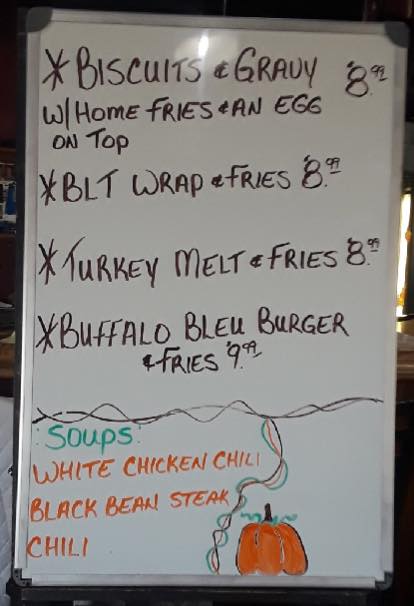 * BISCUITS & GRAVY $8.99
W/ HOME FRIES & AN EGG
ON TOP
* BLT WRAP & FRIES $8.99
* TURKEY MELT & FRIES $8.99
* BUFFALO BLEU BURGER
& FRIES $9.99
: SOUPS:
WHITE CHICKEN CHILI
BLACK BEAN STEAK
CHILI